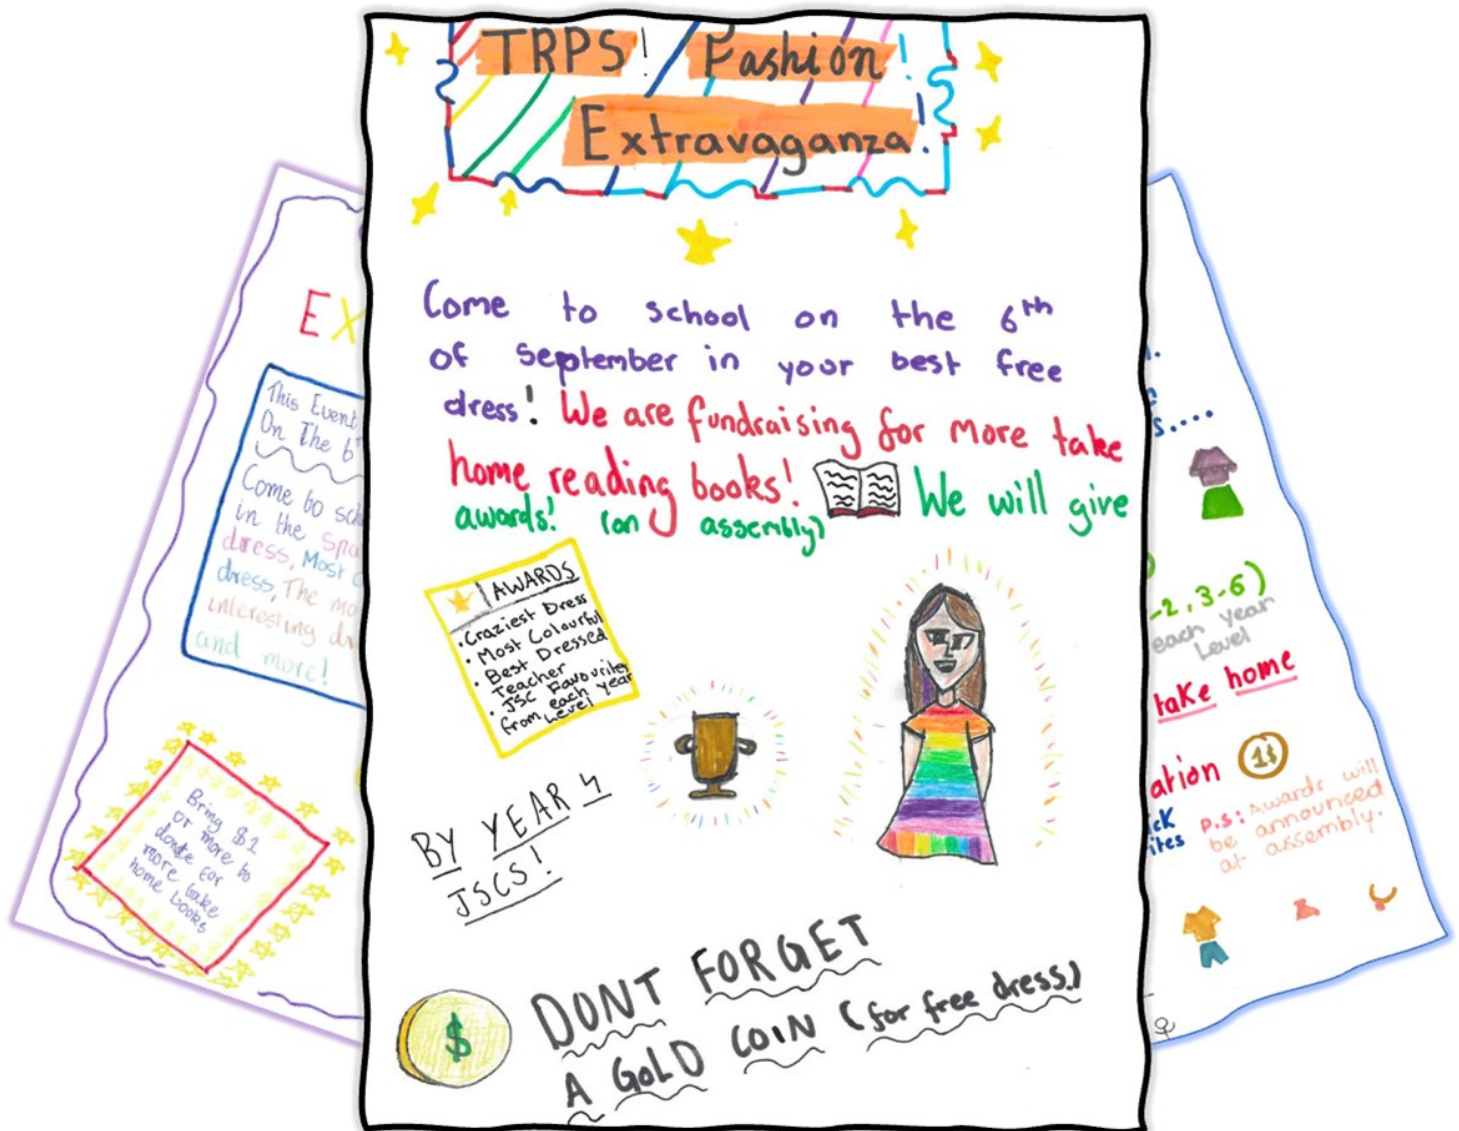 TRPS! Fashion!
Extravaganza!
Come to school on the 6th
of September in your best free
dress! We are fundraising for more take
home reading books! We will give
awards! (on assembly)
AWARDS
• Craziest Dress
• Most Colourful
• Best Dressed
Teacher
• JSC Favourites
from each year
level
BY YEAR 4
JSCS!
$
DONT FORGET
A GOLD COIN (for free dress.)
EX
This Event
On The 6
Come to sch
in the spa
dress, Most c
dress, The mo
interesting dr
and more!
Bring $2
or more to
donate for
more take
home books
s....
-2, 3-6)
each year
level
take home
ation 1$
ck
ites
P.S: Awards will
be announced
at assembly.